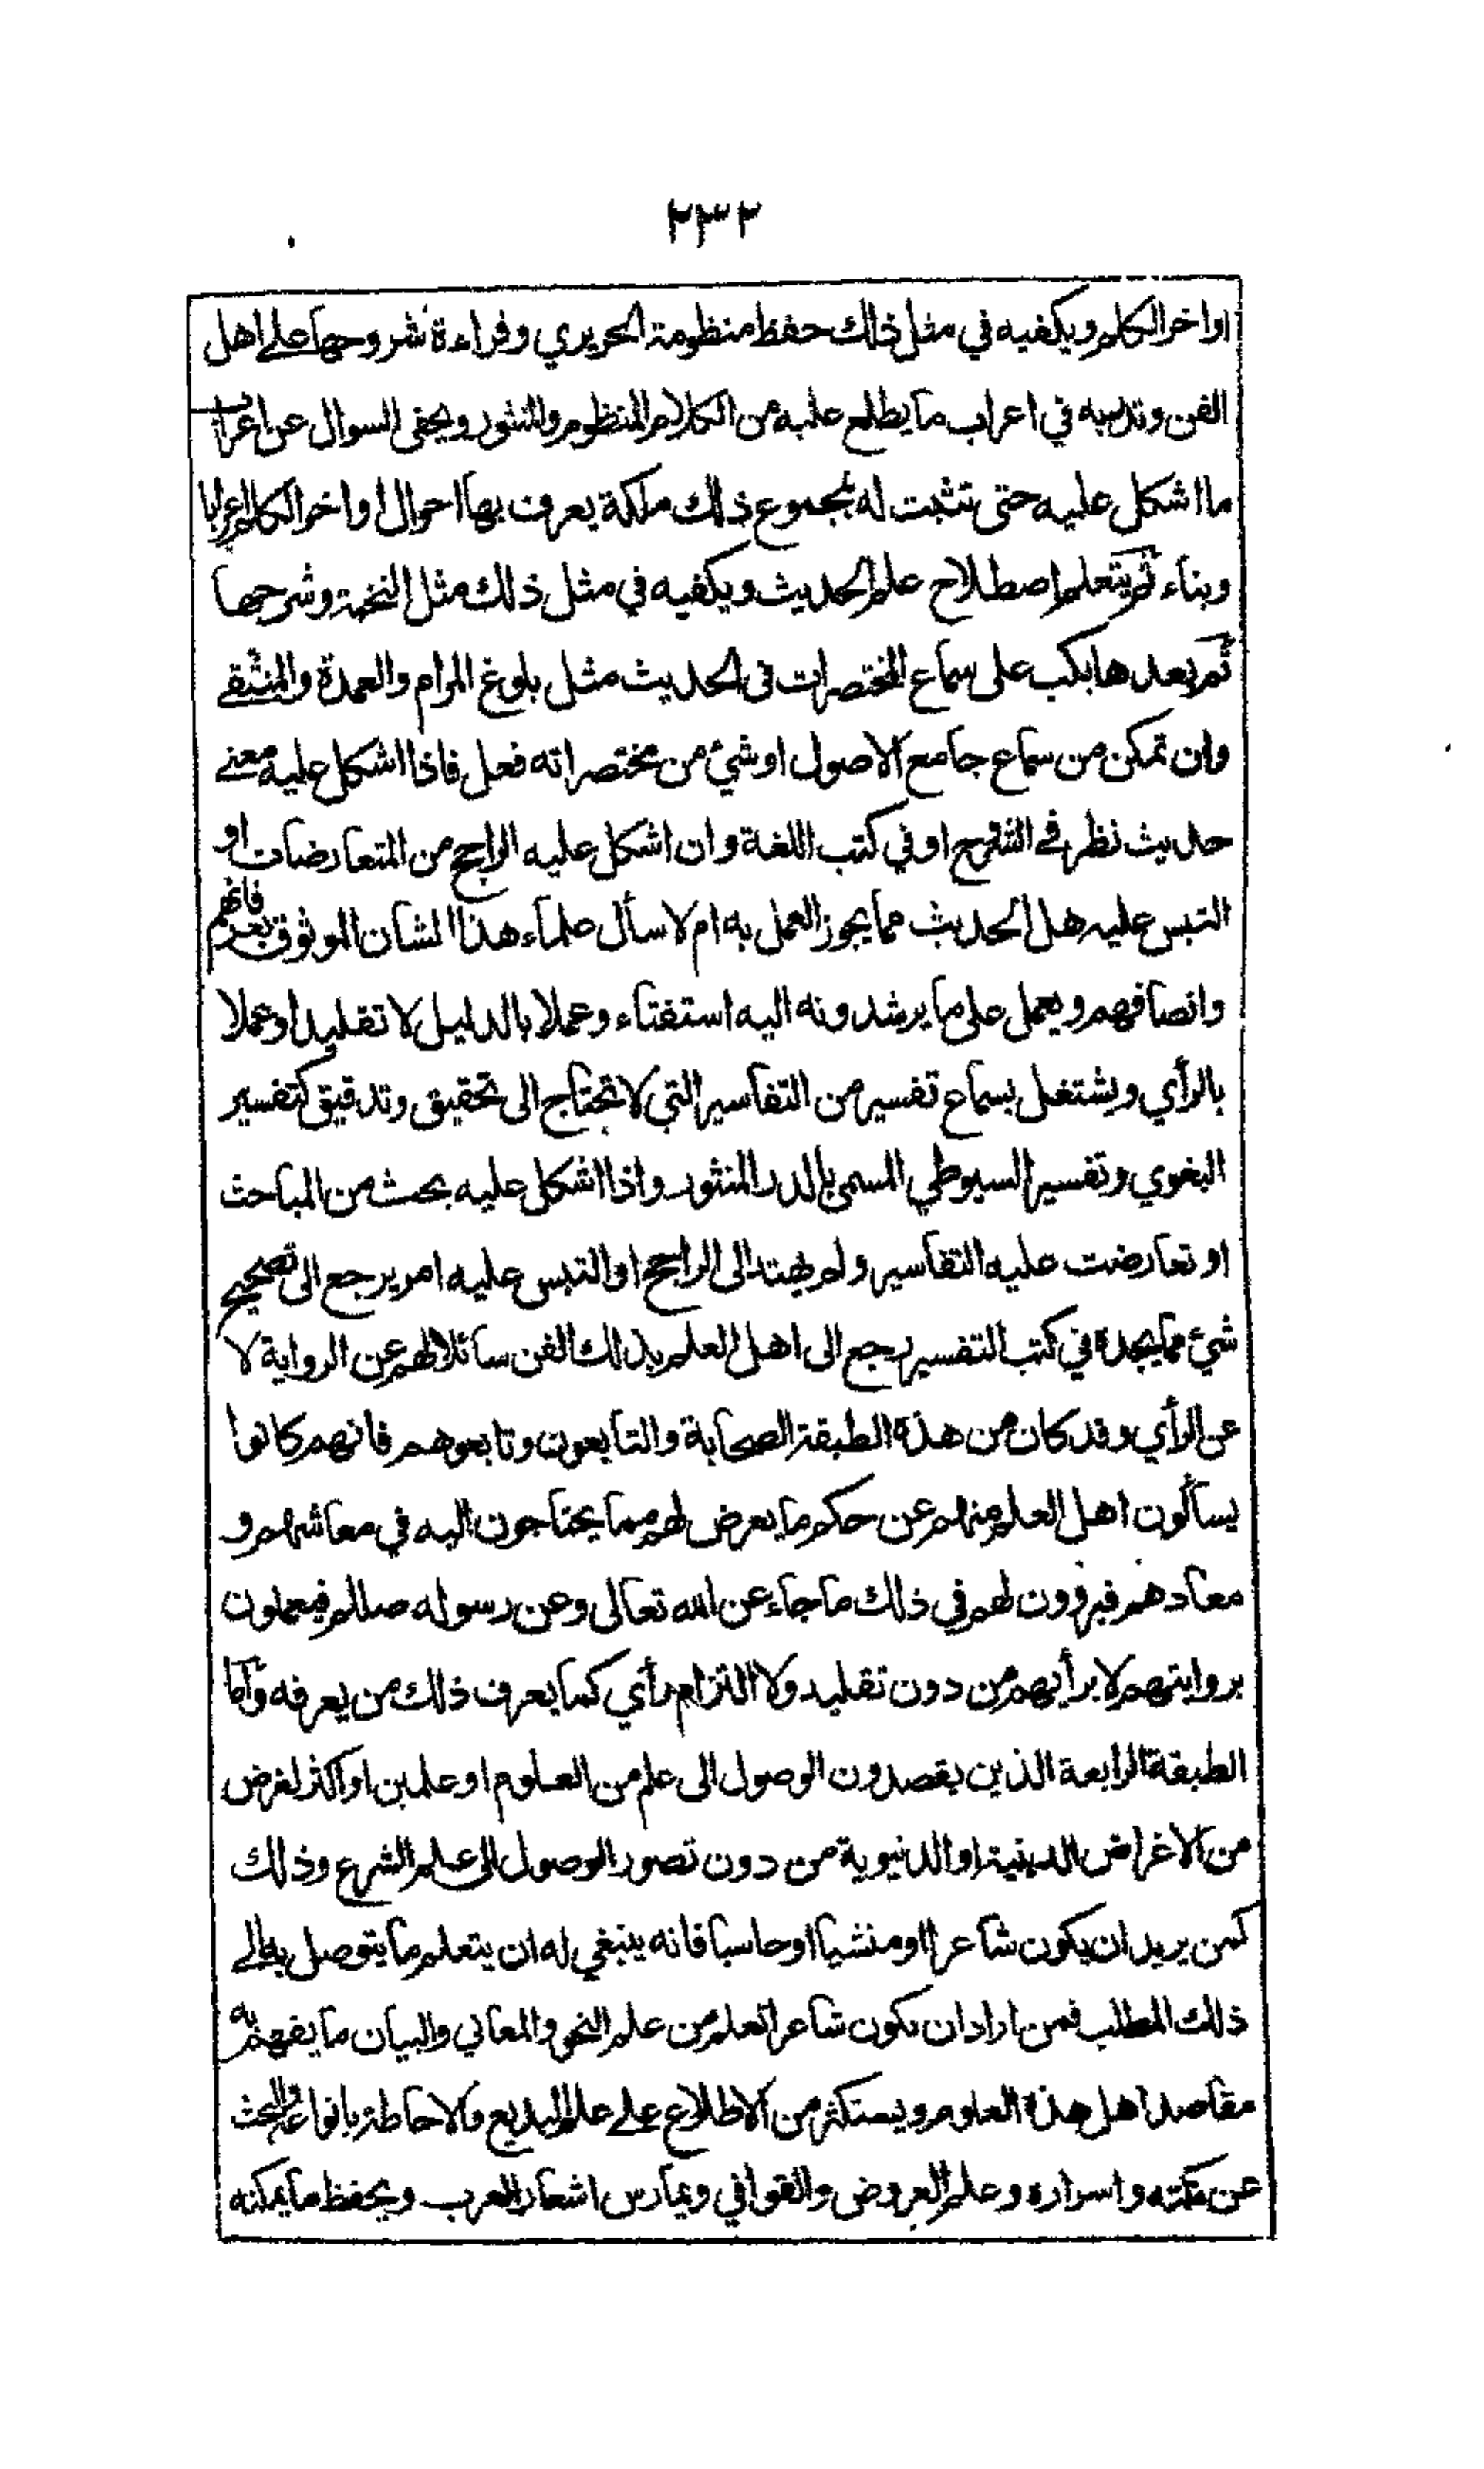 ٢٣٢
اواخر الكلم ويكفيه في مثل ذلك حفظ منظومة الحريري وقراءة شروحها على اهل
الفن وتدربه في اعراب ما يطلع عليه من الكلام المنظوم والمنثور ويحفى السوال عن اعراب
ما اشكل عليه حتى تثبت له بمجموع ذلك ملكة يعرف بها احوال اواخر الكلم اعرابا
وبناء ثم يتعلم اصطلاح علم الحديث ويكفيه في مثل ذلك مثل النخبة وشرحها
ثم بعدها يكب على سماع المختصرات في الحديث مثل بلوغ المرام والعمدة والمنتقى
وان تمكن من سماع جامع الاصول او شيء من مختصراته فعل فاذا اشكل عليه معنے
حديث نظر في الشروح او في كتب اللغة وان اشكل عليه الراجح من المتعارضات او
التبس عليه هل الحديث مما يجوز العمل به ام لا سأل علماء هذا الشان الموثوق بعرفانهم
وانصافهم ويعمل على ما يرشدونه اليه استفتاء وعملا بالدليل لا تقليدا وعملا
بالرأي ويشتغل بسماع تفسير من التفاسير التي لا تحتاج الى تحقيق وتدقيق كتفسير
البغوي وتفسير السيوطي المسمى بالدر المنثور واذا اشكل عليه بحث من المباحث
او تعارضت عليه التفاسير ولم يهتد الى الراجح او التبس عليه امر يرجع الى تصحيح
شيء مما يجده في كتب التفسير رجع الى اهل العلم بذلك الفن سائلا لهم عن الرواية لا
عن الرأي وقد كان من هذه الطبقة الصحابة والتابعون وتابعوهم فانهم كانوا
يسألون اهل العلم منهم عن حكم ما يعرض لهم مما يحتاجون اليه في معاشهم و
معادهم فيروون لهم في ذلك ما جاء عن الله تعالى وعن رسوله صللم فيعملون
بروايتهم لا برأيهم من دون تقليد ولا التزام رأي كما يعرف ذلك من يعرفه وآما
الطبقة الرابعة الذين يقصدون الوصول الى علم من العلوم او علمين او اكثر لغرض
من الاغراض الدينية او الدنيوية من دون تصور الوصول الى علم الشرع وذلك
كمن يريد ان يكون شاعرا او منشيا او حاسبا فانه ينبغي له ان يتعلم ما يتوصل به الے
ذلك المطلب فمن اراد ان يكون شاعرا تعلم من علم النحو والمعاني والبيان ما يفهم به
مقاصد اهل هذه العلوم ويستكثر من الاطلاع علے علم البديع والاحاطة بانواعه والبحث
عن نكته واسراره وعلم العروض والقوافي ويمارس اشعار العرب ويحفظ ما يمكنه